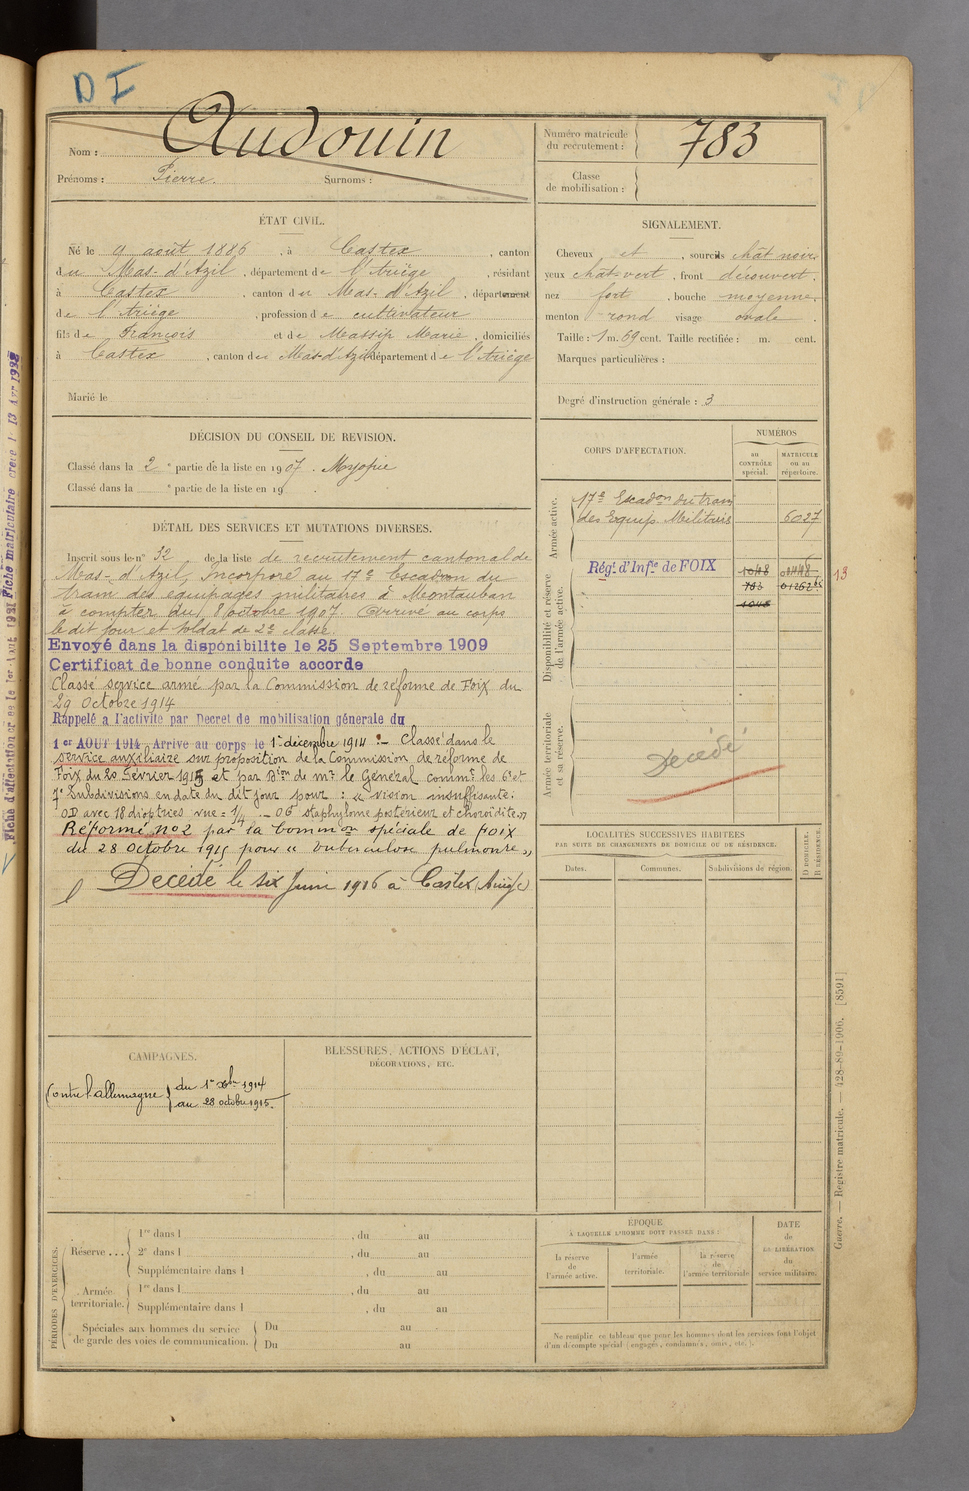 D I
Nom : Audouin
Prénoms : Pierre. Surnoms :
Numéro matricule du recrutement : 783
Classe de mobilisation :
ÉTAT CIVIL.
Né le 9 août 1886, à Castex, canton
du Mas-d'Azil, département de l'Ariège, résidant
à Castex, canton du Mas-d'Azil, département
de l'Ariège, profession de cultivateur
fils de François et de Massip Marie, domiciliés
à Castex, canton du Mas-d'Azil département de l'Ariège
Marié le
SIGNALEMENT.
Cheveux et, sourcils chât noir
yeux chât-vert, front découvert,
nez fort, bouche moyenne,
menton rond visage ovale.
Taille : 1 m. 69 cent. Taille rectifiée : m. cent.
Marques particulières :
Degré d'instruction générale : 3
DÉCISION DU CONSEIL DE REVISION.
Classé dans la 2e partie de la liste en 1907. Myopie
Classé dans la e partie de la liste en 19 .
DÉTAIL DES SERVICES ET MUTATIONS DIVERSES.
Inscrit sous le n° 32 de la liste de recrutement cantonal de
Mas-d'Azil, Incorporé au 17e Escadron du
train des équipages militaires à Montauban
à compter du 8 octobre 1907. Arrivé au corps
le dit jour et soldat de 2e classe.
Envoyé dans la disponibilite le 25 Septembre 1909
Certificat de bonne conduite accorde
Classé service armé par la Commission de réforme de Foix du
29 Octobre 1914
Rappelé a l'activite par Decret de mobilisation génerale du
1er AOUT 1914 Arrive au corps le 1er décembre 1914 :- Classé dans le
service auxiliaire sur proposition de la Commission de réforme de
Foix du 20 Février 1915 et par Don de Mr le Général commt les 6e et
7e Subdivisions en date du dit jour pour : « vision insuffisante.
OD avec 18 dioptries vue = 1/4 - OG staphylome postérieur et choroïdite »
Réformé no 2 par la Common spéciale de Foix
du 28 Octobre 1915 pour « tuberculose pulmonre »
Decédé le six Juin 1916 à Castex (Ariège)
CORPS D'AFFECTATION.
NUMÉROS
AU CONTRÔLE spécial.
MATRICULE ou au répertoire.
Armée active.
17e Escadon du train
des Equip. Militaires 6027
Disponibilité et réserve de l'armée active.
Régt d'Infie de FOIX 1048 13
783 01262 bis
1048
Armée territoriale et sa réserve.
Décédé
LOCALITÉS SUCCESSIVES HABITÉES
PAR SUITE DE CHANGEMENTS DE DOMICILE OU DE RÉSIDENCE.
Dates. Communes. Subdivisions de région. D DOMICILE. R RÉSIDENCE.
CAMPAGNES.
Contre l'allemagne } du 1er Xbre 1914
au 28 octobre 1915.
BLESSURES, ACTIONS D'ÉCLAT,
DÉCORATIONS, ETC.
PÉRIODES D'EXERCICES.
Réserve ... { 1re dans l , du au
2e dans l , du au
Supplémentaire dans l , du au
Armée territoriale. { 1re dans l , du au
Supplémentaire dans l , du au
Spéciales aux hommes du service de garde des voies de communication. { Du au
Du au
ÉPOQUE
À LAQUELLE L'HOMME DOIT PASSER DANS :
la réserve de l'armée active.
l'armée territoriale.
la réserve de l'armée territoriale
DATE de LA LIBÉRATION du service militaire.
Ne remplir ce tableau que pour les hommes dont les services font l'objet
d'un décompte spécial (engagés, condamnés, omis, etc.).
Guerre. — Registre matricule. — 428-89-1906. [8591]
Fiche d'affectation créée le 1er Aout 1931 Fiche matriculaire créée le 13 Avr 1932